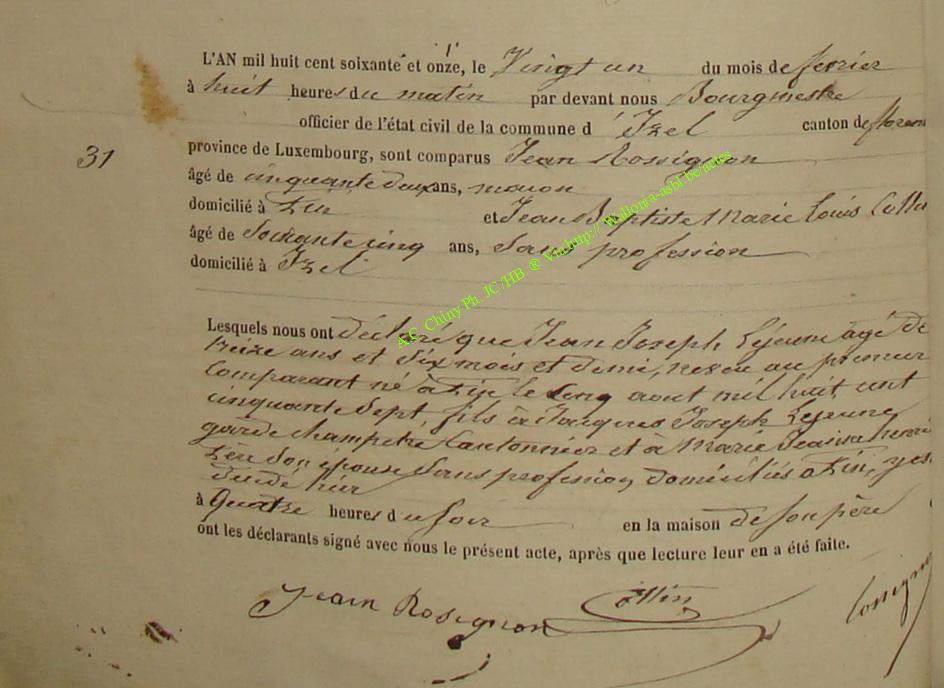 L'AN mil huit cent soixante et onze, le Vingt un du mois de fevrier
à huit heures du matin par devant nous Bourgmestre
officier de l'état civil de la commune d'Izel canton de floren
31
province de Luxembourg, sont comparus Jean Rossignon
âgé de cinquante deux ans,
domicilié à et Jean Baptiste Marie Louis
âgé de Soixante cinq ans, Sans profession
domicilié à Izel
A.C. Chiny Ph. JC/HB ® Via http:// Wallonia-asbl.be/actes
Lesquels nous ont déclaré que Jean Joseph Lejeune âgé de
treize ans et Six mois et demi, neveu au premier
Comparant né à le cinq aout mil huit cent
cinquante Sept, fils à Jacques Joseph Lejeune
garde champetre, Cantonnier et à Marie
Son épouse Sans profession, domiciliés a
à Quatre heures du Soir en la maison de Son père
ont les déclarants signé avec nous le présent acte, après que lecture leur en a été faite.
Jean Rosignon